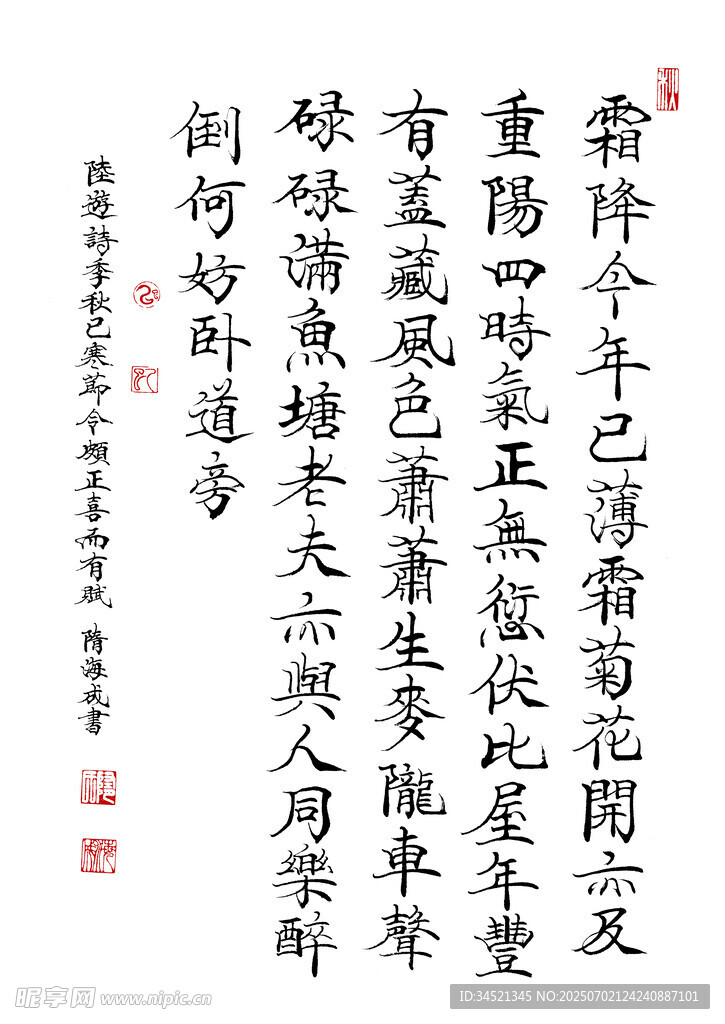 秋
霜降今年已薄霜菊花開亦及
重陽四時氣正無愆伏比屋年豐
有蓋藏風色蕭蕭生麥隴車聲
碌碌滿魚塘老夫亦與人同樂醉
倒何妨卧道旁
陸遊詩季秋已寒節令頗正喜而有賦 隋海成書
昵享网 www.nipic.cn
ID:34521345 NO:20250702124240887101